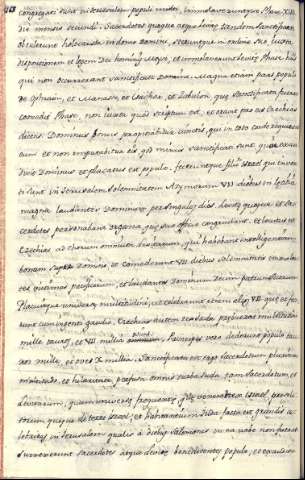 congregati sunt in Jerusalem populi multi, immolaverunt autem Phase XIV
die mensis secundi. Sacerdotes quoque atque Levitæ tandem sanctificati
obtulerunt holocausta in domo Domini, steteruntque in ordine suo iuxta
dispositionem et legem Dei hominis Moysi, et immolaverunt Levitæ Phase his
qui non occurrerant sanctificari Domino. Magna etiam pars populi
de Ephraim, et Manasse, et Issachar, et Zabulon, quæ sanctificata non fuerat
comedit Phase, non iuxta quod scriptum est, et oravit pro eis Ezechias
dicens. Dominus bonus propitiabitur cunctis, qui in toto corde requirunt
eum et non imputabitur eis quod minus sanctificati sunt, quem exaudivit
Dominus et placatus est populo. feceruntque filii Israel qui inventi
sunt in Jerusalem solemnitatem Azymorum VII diebus in lætitia
magna laudantes Dominum per singulos dies Levitæ quoque, et Sacerdotes
per organa quæ suo officio congruebant. et locutus est
Ezechias ad cor omnium Levitarum, qui habebant intelligentiam
bonam super Domino et comederunt VII diebus solemnitatis immolantes
victimas pacificorum, et laudantes Dominum Deum patrum suorum
Placuitque universæ multitudini, ut celebrarent etiam alios VII quod et fecerunt
cum ingenti gaudio. Ezechias autem præbuerat multitudini
mille tauros, et VII millia ovium. Principes vero dederunt populo tauros
mille, et oves X millia. Sanctificata est ergo sacerdotum plurima
multitudo, et hilaritate perfusa omnis turba Juda tam Sacerdotum, et
Levitarum, quam universæ frequentiæ, quæ venerat ex Israel, proselytorum
quoque de terra Israel, et habitantium in Juda facta est grandis celebritas
in Jerusalem qualis a diebus Salomonis in ea urbe non fuerat
surrexerunt sacerdotes atque Levitæ benedicentes populo, et exaudita